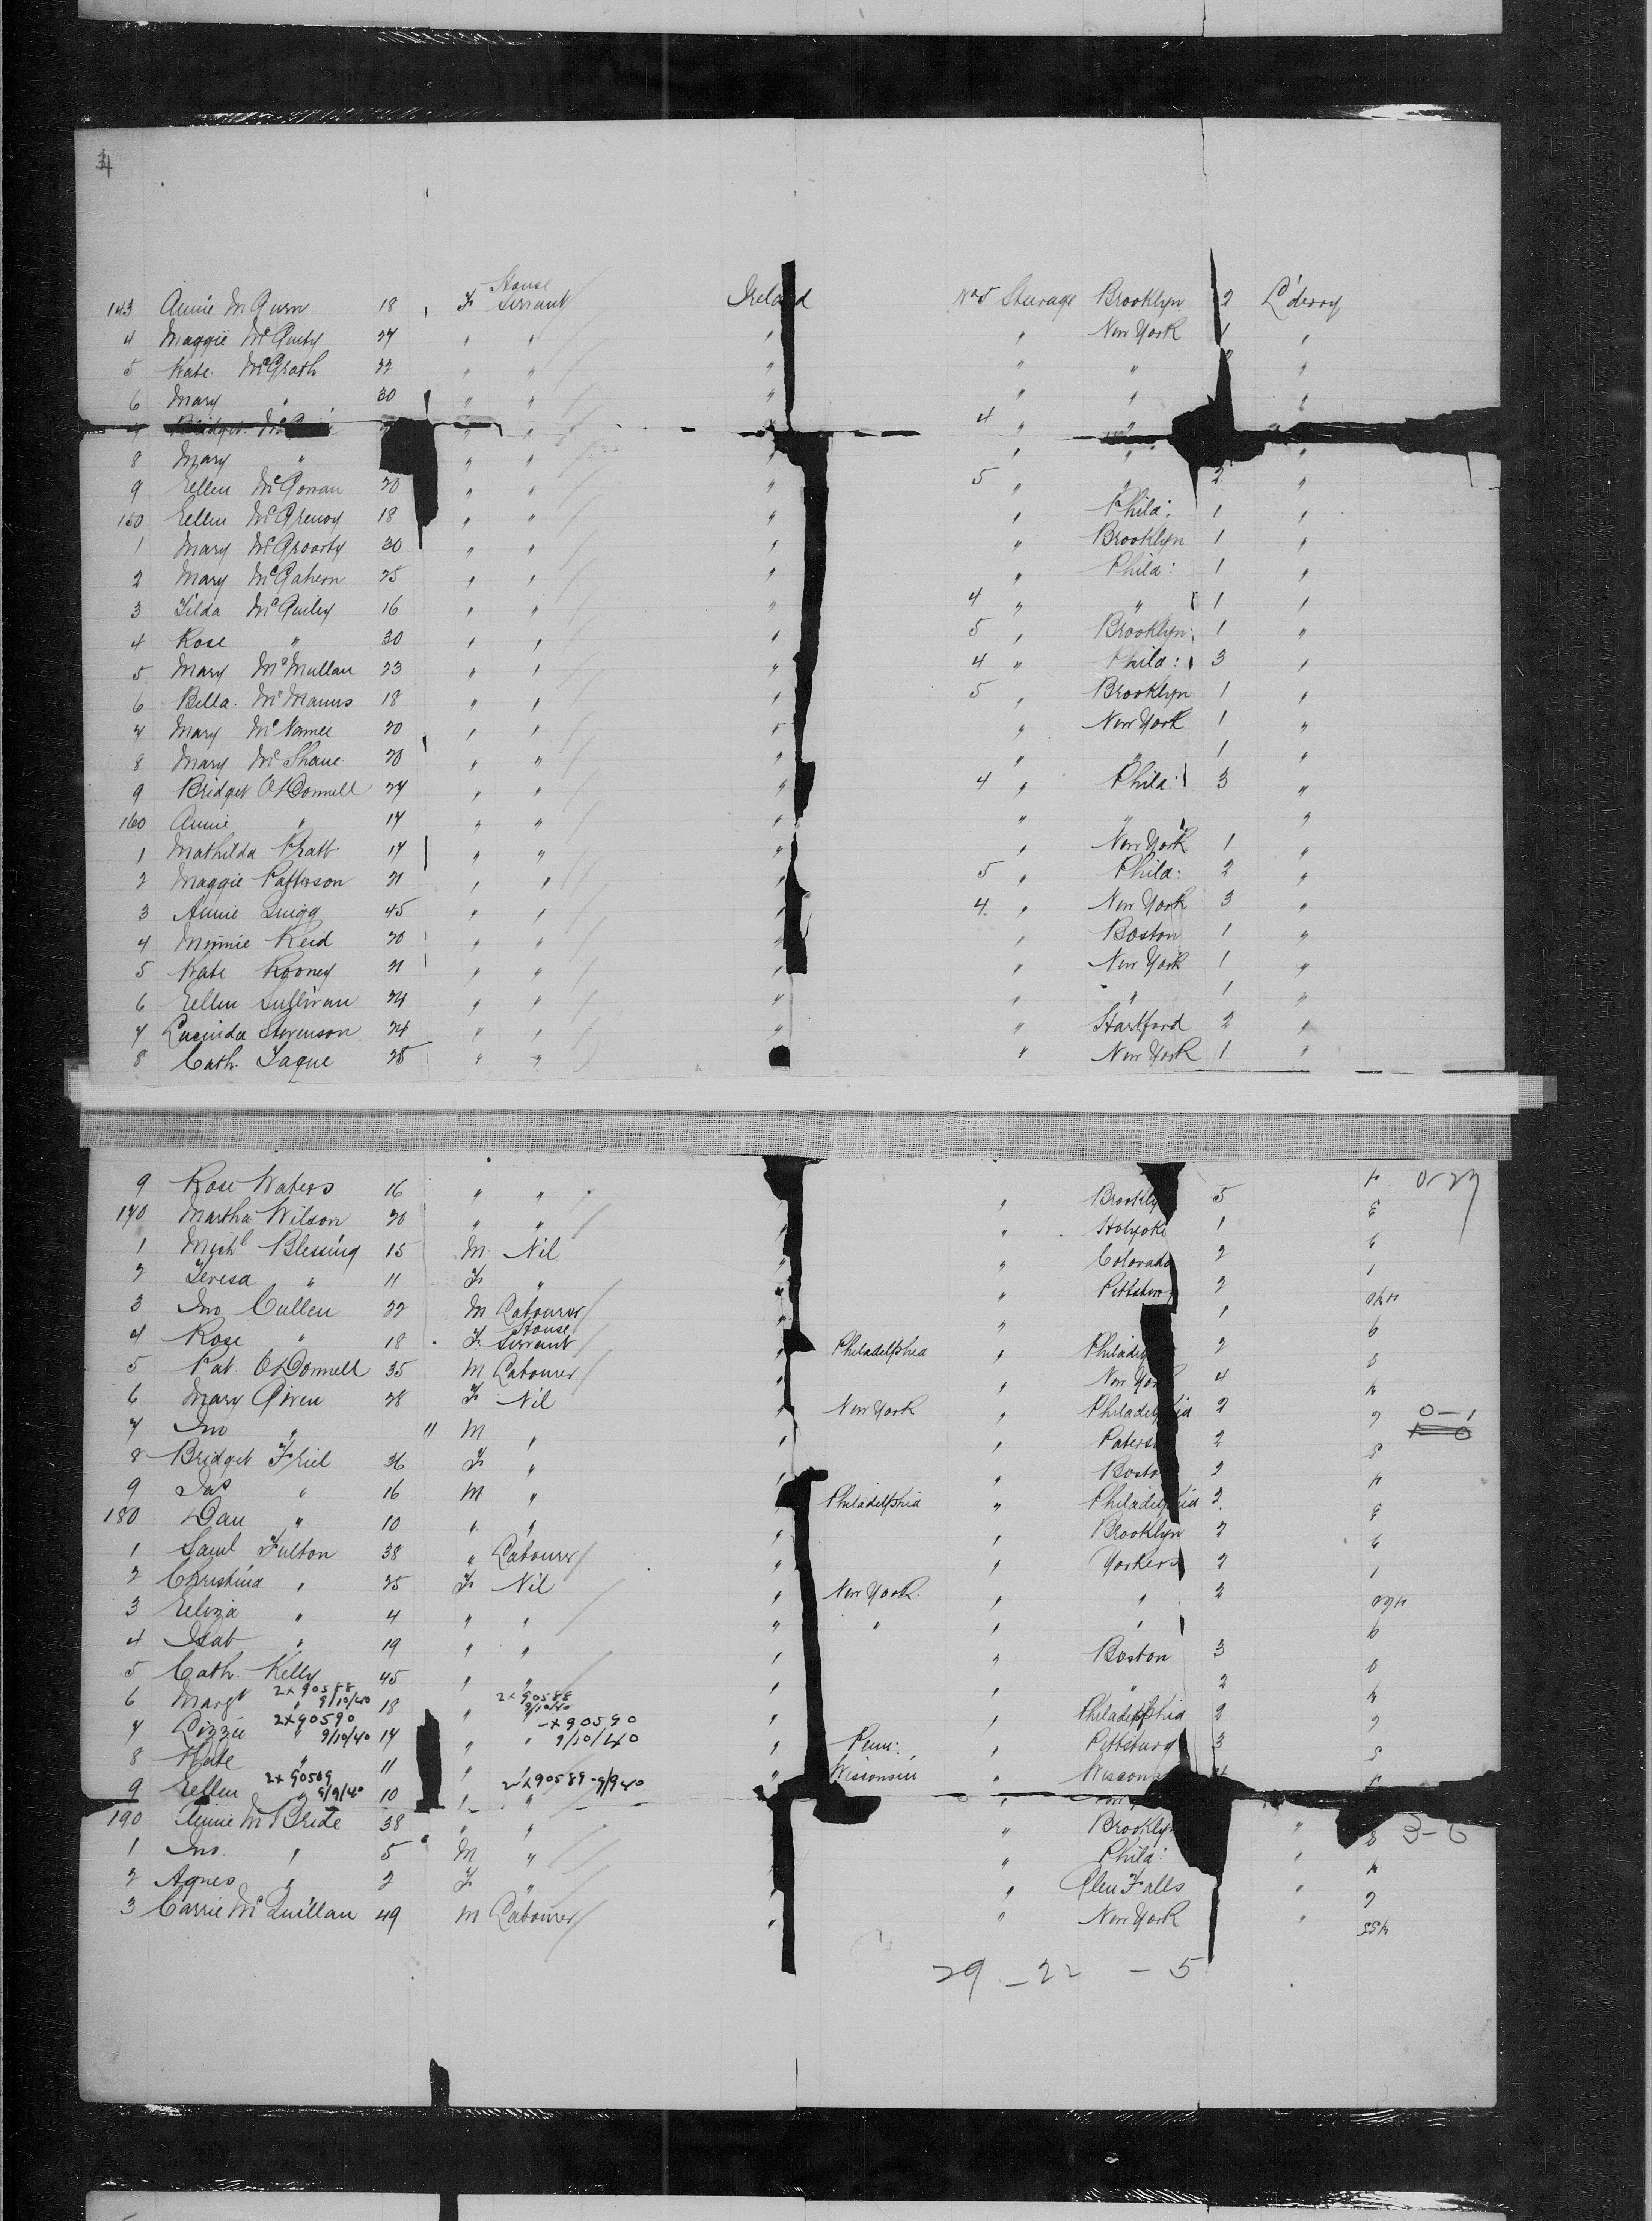 143 Annie McGurn 18 F House Servant Ireland No 5 Steerage Brooklyn 2 L'derry
4 Maggie McGuity 27 " " " " New York 1 "
5 Kate McGrath 22 " " " " " "
6 Mary " 30 " " " " " "
7 Bridget Mc " " 4 " "
8 Mary " " " " " " "
9 Ellen McGowan 20 " " " 5 " " 2 "
150 Ellen McGrenoy 18 " " " " Phila: 1 "
1 Mary McGroarty 30 " " " " Brooklyn 1 "
2 Mary McGahern 25 " " " " Phila: 1 "
3 Tilda McGuiley 16 " " " 4 " " 1 "
4 Rose " 30 " " " 5 " Brooklyn 1 "
5 Mary McMullan 23 " " " 4 " Phila: 3 "
6 Bella McManus 18 " " " 5 " Brooklyn 1 "
7 Mary McNamee 20 " " " " New York 1 "
8 Mary McShane 20 " " " " " 1 "
9 Bridget O'Donnell 24 " " " 4 " Phila: 3 "
160 Annie " 17 " " " " " "
1 Mathilda Pratt 17 " " " " New York 1 "
2 Maggie Patterson 21 " " " 5 " Phila: 2 "
3 Annie Quigg 45 " " " 4 " New York 3 "
4 Minnie Reid 20 " " " " Boston 1 "
5 Kate Rooney 21 " " " " New York 1 "
6 Ellen Sullivan 24 " " " " " 1 "
7 Lucinda Stevenson 24 " " " " Hartford 2 "
8 Cath. Tague 25 " " " New York 1 "
9 Rose Waters 16 " " " Brookly 5
170 Martha Wilson 20 " " " " Holyoke 1
1 Michl Blessing 15 M Nil " " Colorado 2
2 Teresa " 11 F " " " Pittston 2
3 Jno Cullen 22 M Labourer " " 1
4 Rose " 18 F House Servant " Philadelphia " Philadel 2
5 Pat. O'Donnell 35 M Labourer " " New York 4
6 Mary Given 28 F Nil " New York Philadelphia 2
7 Jno " " M " " " Paterso 2 0-1
8 Bridget Friel 36 F " " " Bosto 3
9 Jas " 16 M " Philadelphia " Philadelphia 2
180 Dan " 10 " " " " Brooklyn 2
1 Saml Fulton 38 " Labourer " " Yonkers 2
2 Christina " 25 F Nil " New York " " 2
3 Eeliza " 4 " " " " " "
4 Isab " 19 " " " " Boston 3
5 Cath. Kelly 45 " " " " " 2
6 Margt " 2x90588 9/10/40 18 " " 2x90588 9/10/40 " " Philadelphia 2
7 Lizzie " 2x90590 9/10/40 14 " " -x90590 9/10/40 " Penn: " Pittsburg 3
8 Kate " 11 " " Wisconsin " Wiscons
9 Ellen " 2x90589 9/9/40 10 " " 2x90589-9/9/40 "
190 Annie McBride 38 " " " Brookly " 3-6
1 Jno. " 5 M " " Phila: "
2 Agnes " 2 F " " " Glen Falls "
3 Carrie McQuillan 49 M Labourer " " New York "
29 - 22 - 5